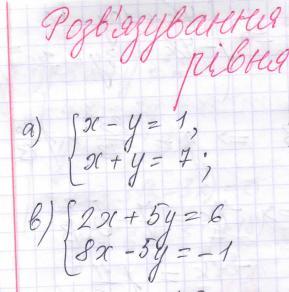 Розв'язування
рівня
а) { x - y = 1,
x + y = 7 ;
в) { 2x + 5y = 6
8x - 5y = -1